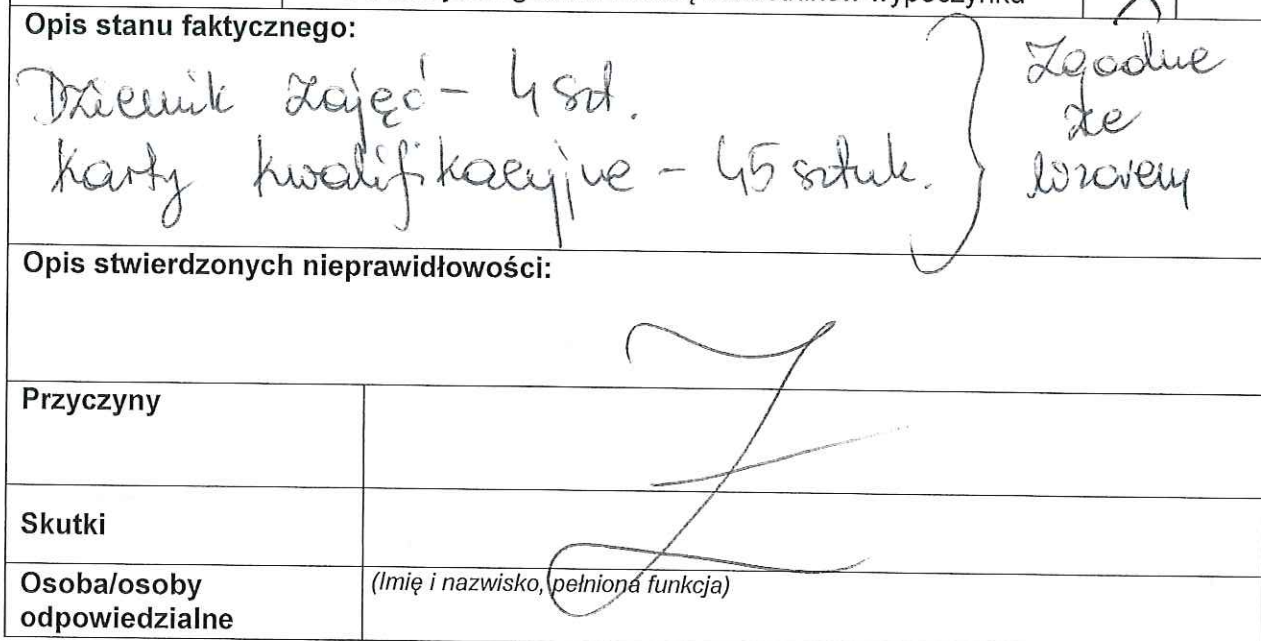 wypoczynku
Opis stanu faktycznego:
Dziennik zajęć - 4 szt.
Karty kwalifikacyjne - 45 sztuk.
Zgodne
ze
wzorem
Opis stwierdzonych nieprawidłowości:
Przyczyny
Skutki
Osoba/osoby
odpowiedzialne
(Imię i nazwisko, pełniona funkcja)